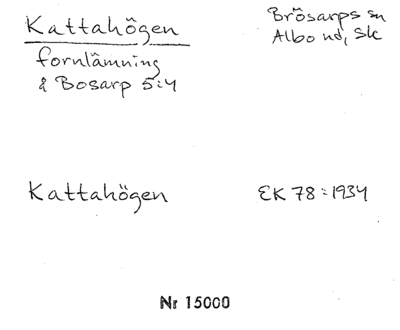 Kattahögen
Brösarps sn
Albo hd, Sk
fornlämning
å Bosarp 5:4
Kattahögen
EK 78:1934
Nr 15000